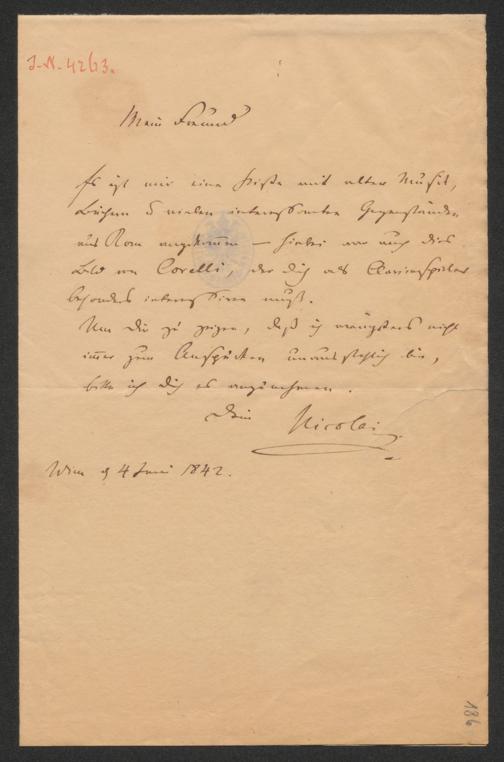 I.N. 4263.
Mein Freund
Es ist mir eine Kiste mit alter Musik,
Büchern & vielen interessanten Gegenständen
aus Rom angekommen — hiebei war auch dies
Bild von Corelli, der Dich als Clavierspieler
besonders interessiren muß.
Um Dir zu zeigen, daß ich wenigstens nicht
immer zum Anspucken unausstehlich bin,
bitte ich Dich es anzunehmen.
Dein Nicolai
Wien d 4 Juni 1842.
186